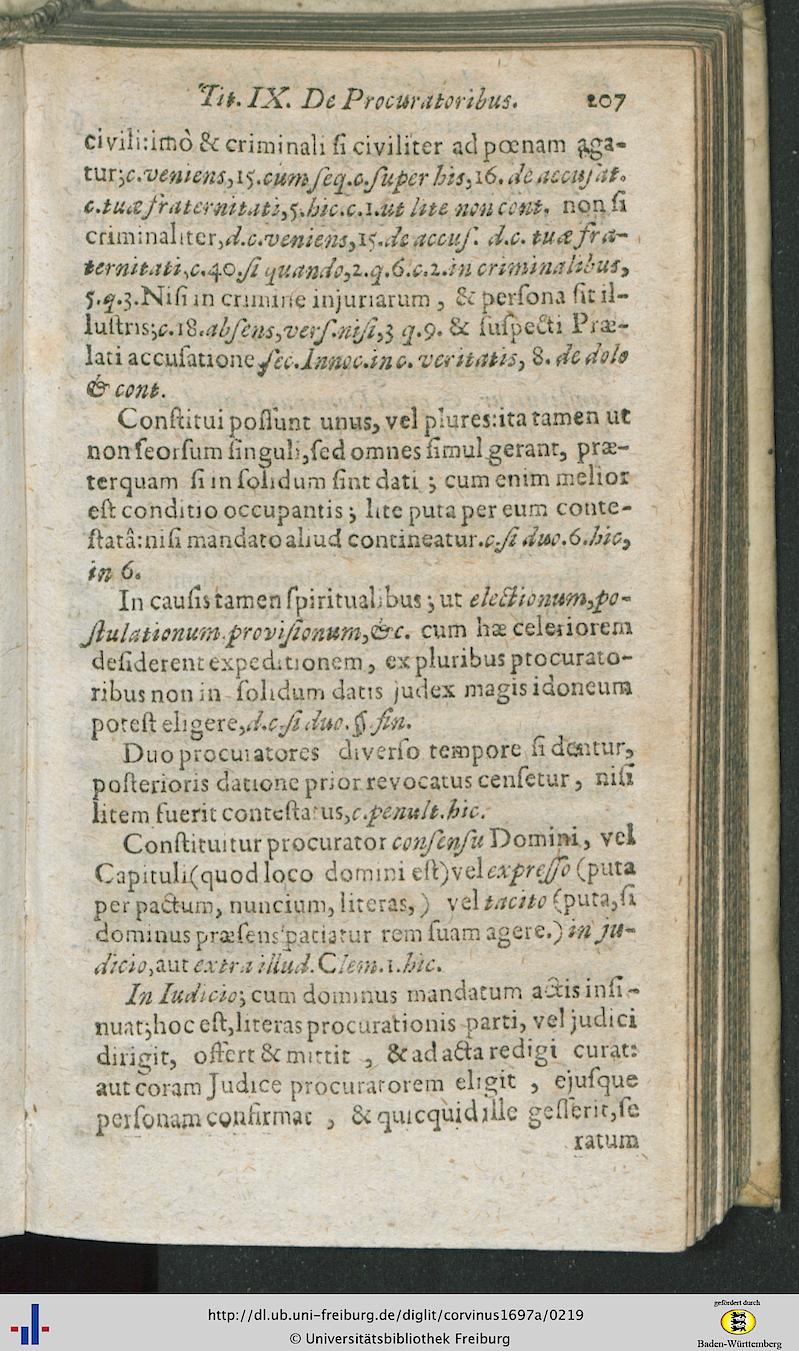 Tit. IX. De Procuratoribus. 207
civili:imò & criminali ſi civiliter ad pœnam aga-
tur;c.veniens,15.cum ſeq.c.ſuper his,16. de accuſat.
c.tuæ fraternitati,5.hic.c.1.ut lite non cont. non ſi
criminaliter,d.c.veniens,15.de accuſ. d.c. tuæ fra-
ternitati,c.40.ſi quando,2.q.6.c.2.in criminalibus,
5.q.3.Niſi in crimine injuriarum , & perſona ſit il-
luſtris;c.18.abſens,verſ.niſi,3 q.9. & ſuſpecti Præ-
lati accuſatione ſec.Innoc.in c. veritatis, 8. de dolo
& cont.
Conſtitui poſſunt unus, vel plures:ita tamen ut
non ſeorſum ſinguli,ſed omnes ſimul gerant, præ-
terquam ſi in ſolidum ſint dati ; cum enim melior
eſt conditio occupantis ; lite puta per eum conte-
ſtatâ:niſi mandato aliud contineatur.c.ſi duo.6.hic,
in 6.
In cauſis tamen ſpiritualibus ; ut electionum,po-
ſtulationum.proviſionum,&c. cum hæ celeriorem
deſiderent expeditionem , ex pluribus procurato-
ribus non in ſolidum datis judex magis idoneum
poteſt eligere,d.c.ſi duo.§.fin.
Duo procuratores diverſo tempore ſi dentur,
poſterioris datione prior revocatus cenſetur , niſi
litem fuerit conteſtatus,c.penult.hic.
Conſtituitur procurator conſenſu Domini, vel
Capituli(quod loco domini eſt)vel expreſſo (puta
per pactum, nuncium, literas, ) vel tacito (puta,ſi
dominus præſens patiatur rem ſuam agere.) in ju-
dicio,aut extra illud. Clem.1.hic.
In Iudicio; cum dominus mandatum actis inſi-
nuat;hoc eſt,literas procurationis parti, vel judici
dirigit, offert & mittit , & ad acta redigi curat:
aut coram Judice procuratorem eligit , ejuſque
perſonam confirmat , & quicquid ille geſſerit,ſe
ratum
http://dl.ub.uni-freiburg.de/diglit/corvinus1697a/0219
© Universitätsbibliothek Freiburg
gefördert durch
Baden-Württemberg